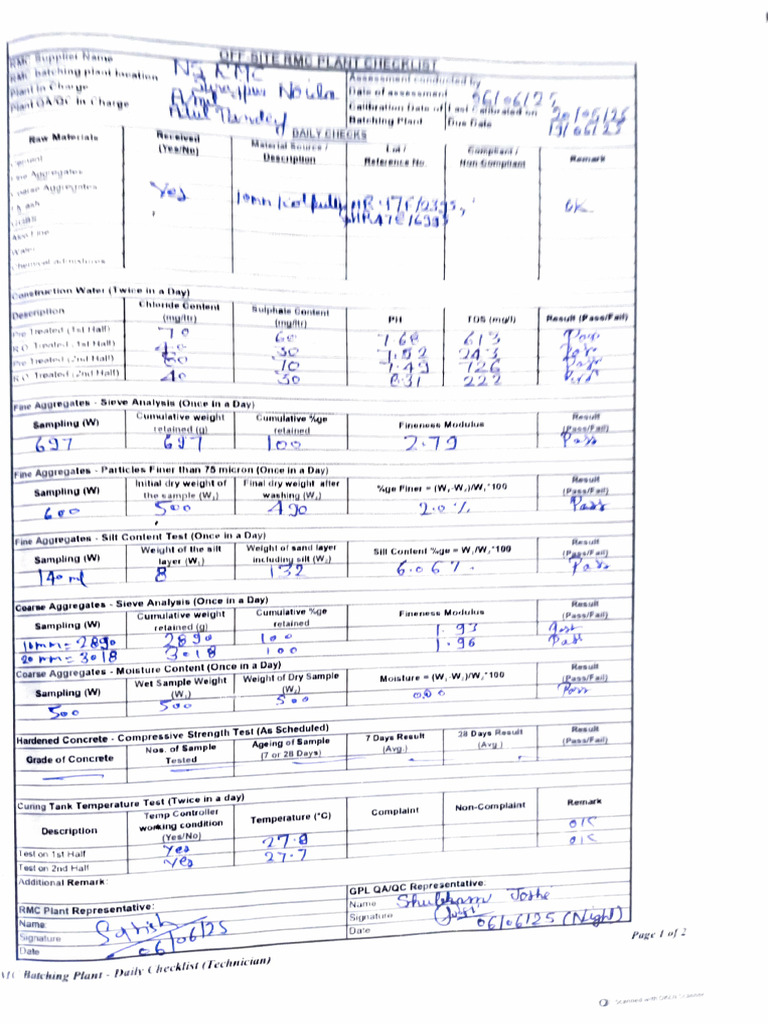 OFF-SITE RMC PLANT CHECKLIST
RMC Supplier Name
RMC batching plant location Surajpur Noida
Plant In Charge
Plant QA/QC In Charge Atul Pandey
Assessment conducted by
Date of assessment 06/06/25
Calibration Date of Batching Plant Last Calibrated on 20/05/25
Due Date 19/06/25
DAILY CHECKS
Raw Materials Received (Yes/No) Material Source / Description Lot / Reference No. Compliant / Non-Compliant Remark
Cement
Fine Aggregates
Coarse Aggregates Yes 10mm OK
Fly ash
GGBS
Alccofine
Water
Chemical admixtures
Construction Water (Twice in a Day)
Description Chloride Content (mg/ltr) Sulphate Content (mg/ltr) PH TDS (mg/l) Result (Pass/Fail)
Pre Treated (1st Half) 70 60 7.68 613 Pass
R.O Treated (1st Half) 40 30 7.52 243 Pass
Pre Treated (2nd Half) 10 7.49 726 Pass
R.O Treated (2nd Half) 40 30 8.31 222 Pass
Fine Aggregates - Sieve Analysis (Once in a Day)
Sampling (W) Cumulative weight retained (g) Cumulative %ge retained Fineness Modulus Result (Pass/Fail)
697 697 100 2.79 Pass
Fine Aggregates - Particles Finer than 75 micron (Once in a Day)
Sampling (W) Initial dry weight of the sample (W₁) Final dry weight after washing (W₂) %ge Finer = (W₁-W₂)/W₁*100 Result (Pass/Fail)
600 500 490 2.0% Pass
Fine Aggregates - Silt Content Test (Once in a Day)
Sampling (W) Weight of the silt layer (W₁) Weight of sand layer including silt (W₂) Silt Content %ge = W₁/W₂*100 Result (Pass/Fail)
140 ml 8 132 6.06%. Pass
Coarse Aggregates - Sieve Analysis (Once in a Day)
Sampling (W) Cumulative weight retained (g) Cumulative %ge retained Fineness Modulus Result (Pass/Fail)
10mm = 2890 2890 100 1.93 Pass
20mm = 3018 3018 100 1.96 Pass
Coarse Aggregates - Moisture Content (Once in a Day)
Sampling (W) Wet Sample Weight (W₁) Weight of Dry Sample (W₂) Moisture = (W₁-W₂)/W₂*100 Result (Pass/Fail)
500 500 500 0.00 Pass
Hardened Concrete - Compressive Strength Test (As Scheduled)
Grade of Concrete Nos. of Sample Tested Ageing of Sample (7 or 28 Days) 7 Days Result (Avg.) 28 Days Result (Avg.) Result (Pass/Fail)
Curing Tank Temperature Test (Twice in a day)
Description Temp Controller working condition (Yes/No) Temperature (°C) Complaint Non-Complaint Remark
Test on 1st Half Yes 27.8 OK
Test on 2nd Half Yes 27.7 OK
Additional Remark:
RMC Plant Representative: GPL QA/QC Representative:
Name: Satish Name Shubham Joshi
Signature Signature
Date 06/06/25 Date 06/06/25 (Night)
Page 1 of 2
RMC Batching Plant - Daily Checklist (Technician)